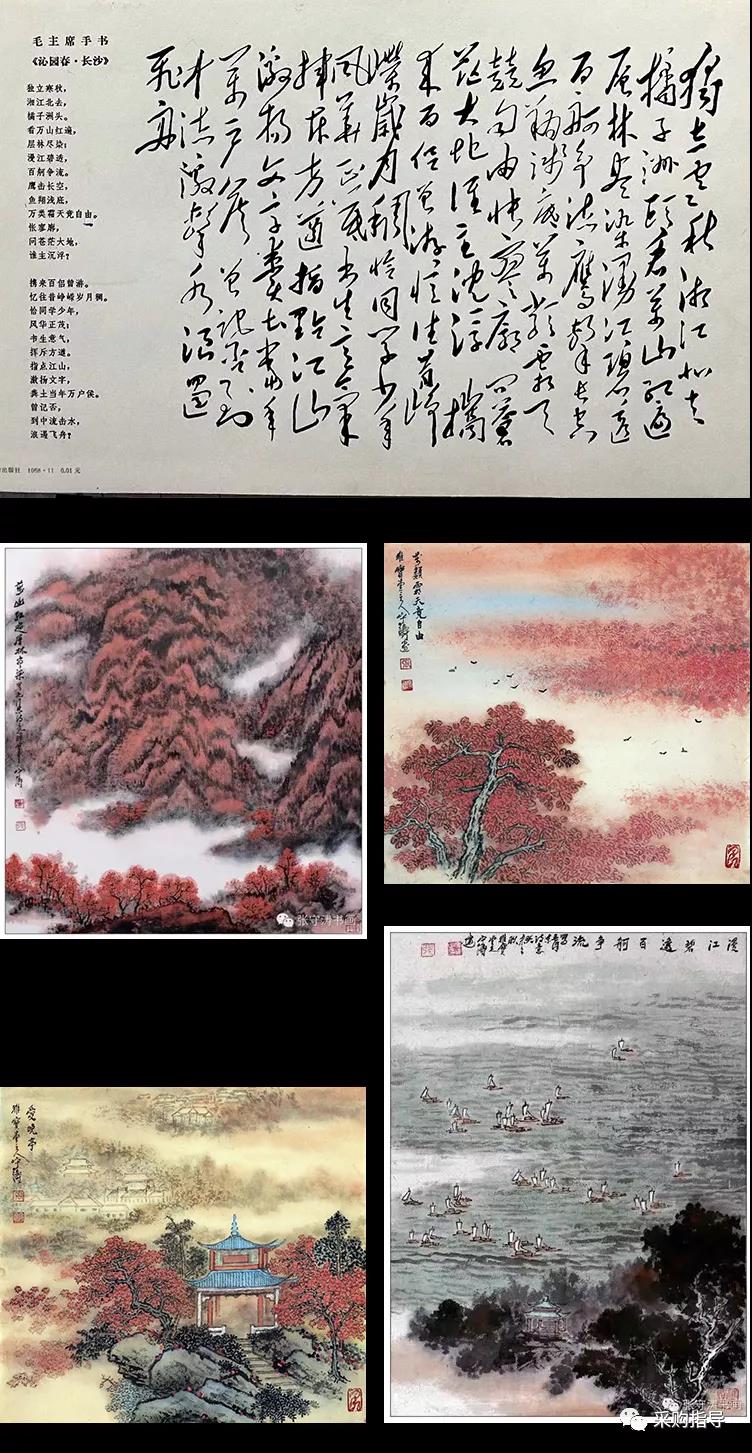 毛主席手书
《沁园春·长沙》
独立寒秋，
湘江北去，
橘子洲头。
看万山红遍，
层林尽染；
漫江碧透，
百舸争流。
鹰击长空，
鱼翔浅底，
万类霜天竞自由。
怅寥廓，
问苍茫大地，
谁主沉浮？
携来百侣曾游。
忆往昔峥嵘岁月稠。
恰同学少年，
风华正茂；
书生意气，
挥斥方遒。
指点江山，
激扬文字，
粪土当年万户侯。
曾记否，
到中流击水，
浪遏飞舟？
出版社 1968·11 0.01元
獨立寒秋湘江北去
橘子洲頭看萬山紅遍
层林尽染漫江碧透
百舸争流鷹擊長空
魚翔淺底萬類霜天
競自由悵寥廓問蒼
茫大地谁主沈浮攜
来百侣曾游憶往昔峥
嶸歲月稠恰同学少年
風華正茂書生意氣
挥斥方遒指點江山
激揚文字糞土當年
萬户侯曾記否到
中流擊水浪遏
飛舟
萬山紅遍层林尽染
张守涛书画
萬類霜天竞自由
雅寶堂主人守濤画
愛晚亭
雅寶堂主人守濤
漫江碧透百舸争流
张守涛书画
采购指导